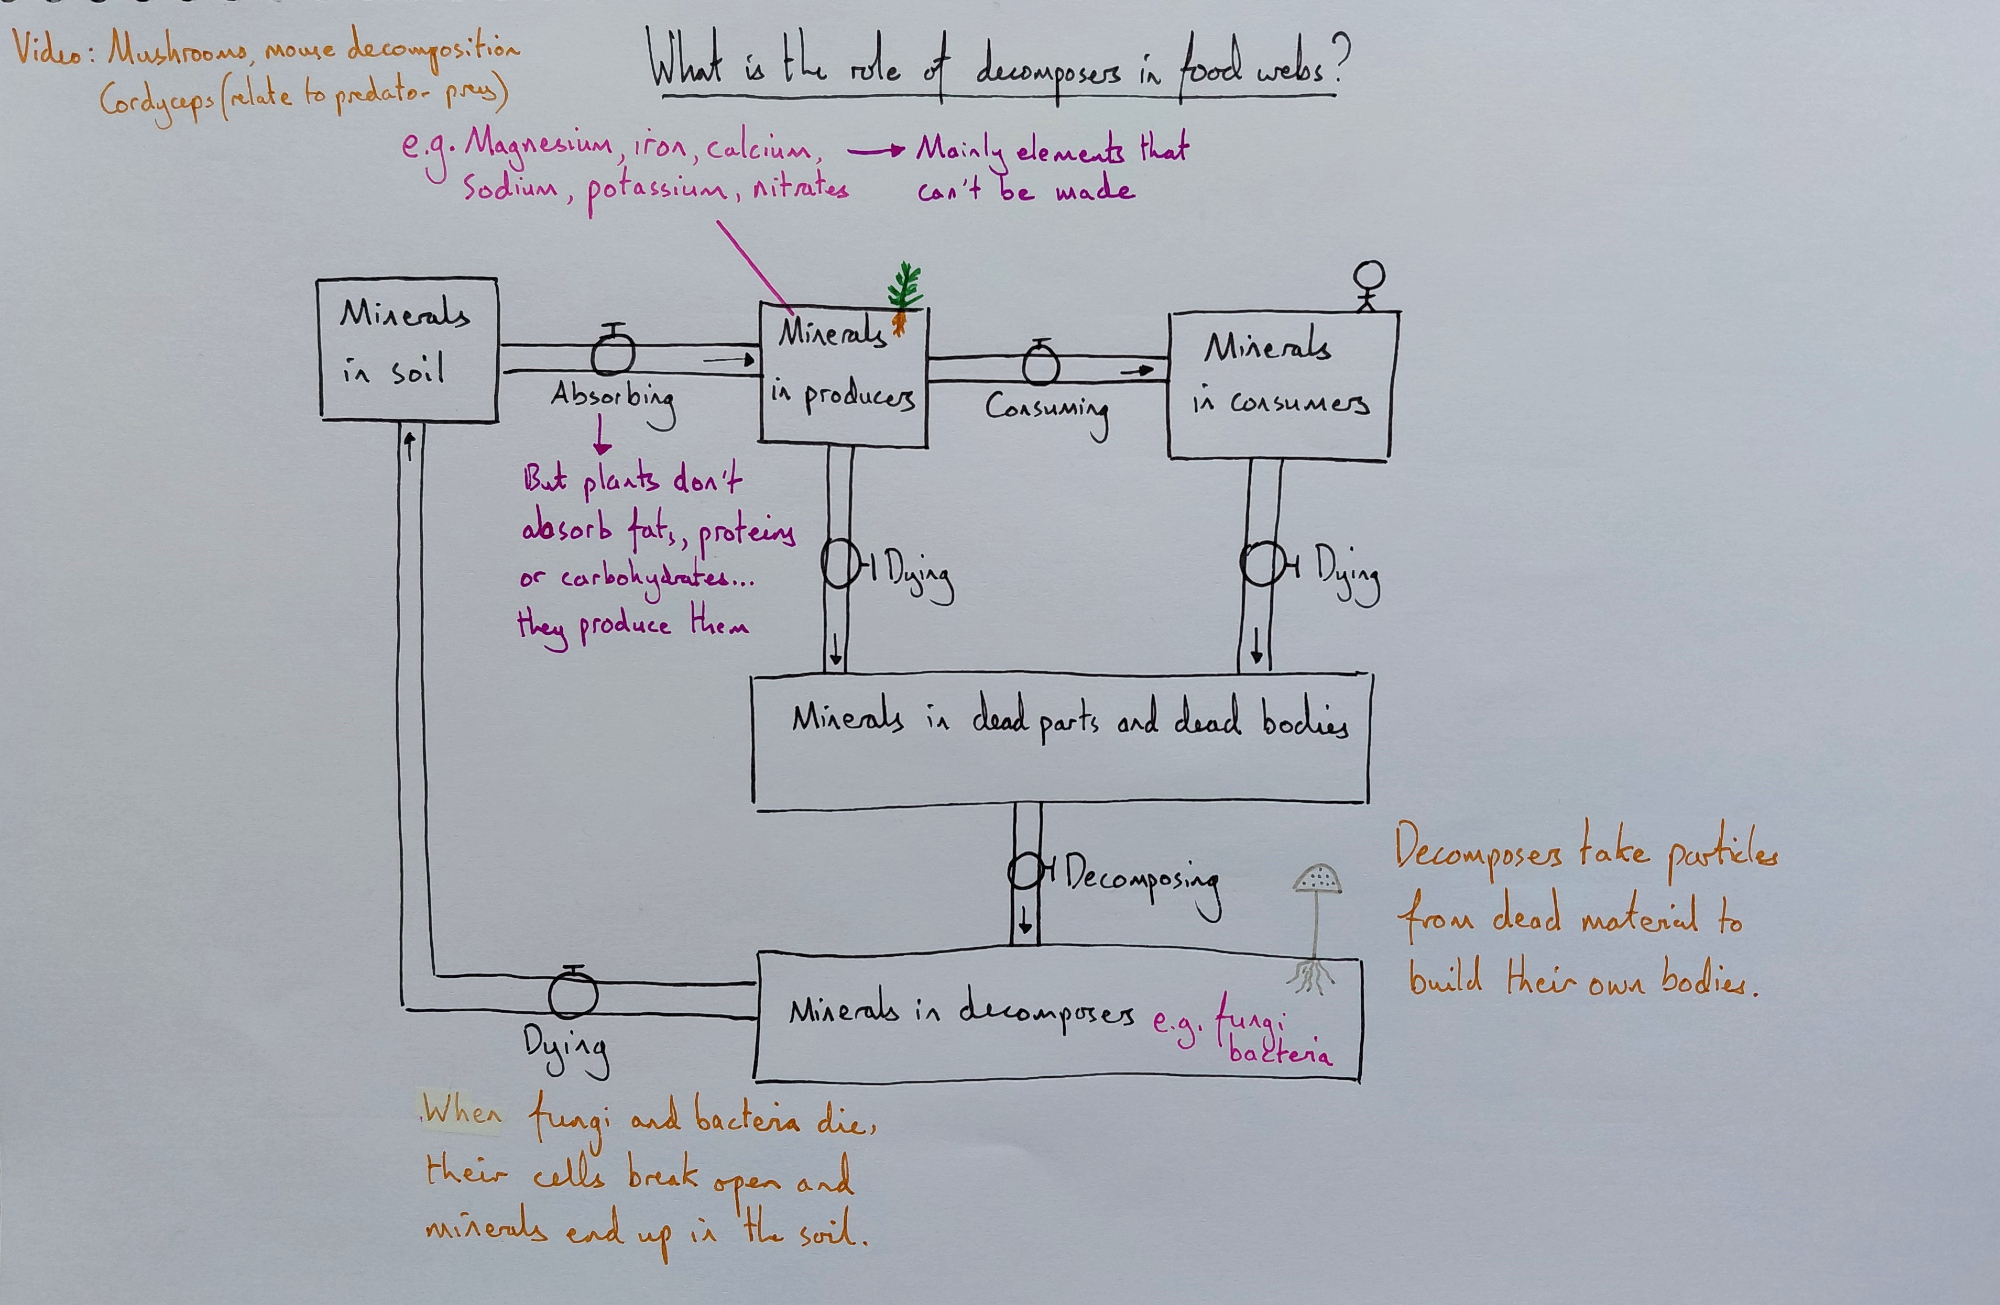 Video: Mushrooms, mouse decomposition
Cordyceps (relate to predator-prey)
What is the role of decomposers in food webs?
e.g. Magnesium, iron, calcium,
Sodium, potassium, nitrates
Mainly elements that
can't be made
Minerals
in soil
Absorbing
Minerals
in producers
Consuming
Minerals
in consumers
But plants don't
absorb fats, proteins
or carbohydrates...
they produce them
Dying
Dying
Minerals in dead parts and dead bodies
Decomposing
Decomposers take particles
from dead material to
build their own bodies.
Minerals in decomposers e.g. fungi
bacteria
Dying
When fungi and bacteria die,
their cells break open and
minerals end up in the soil.